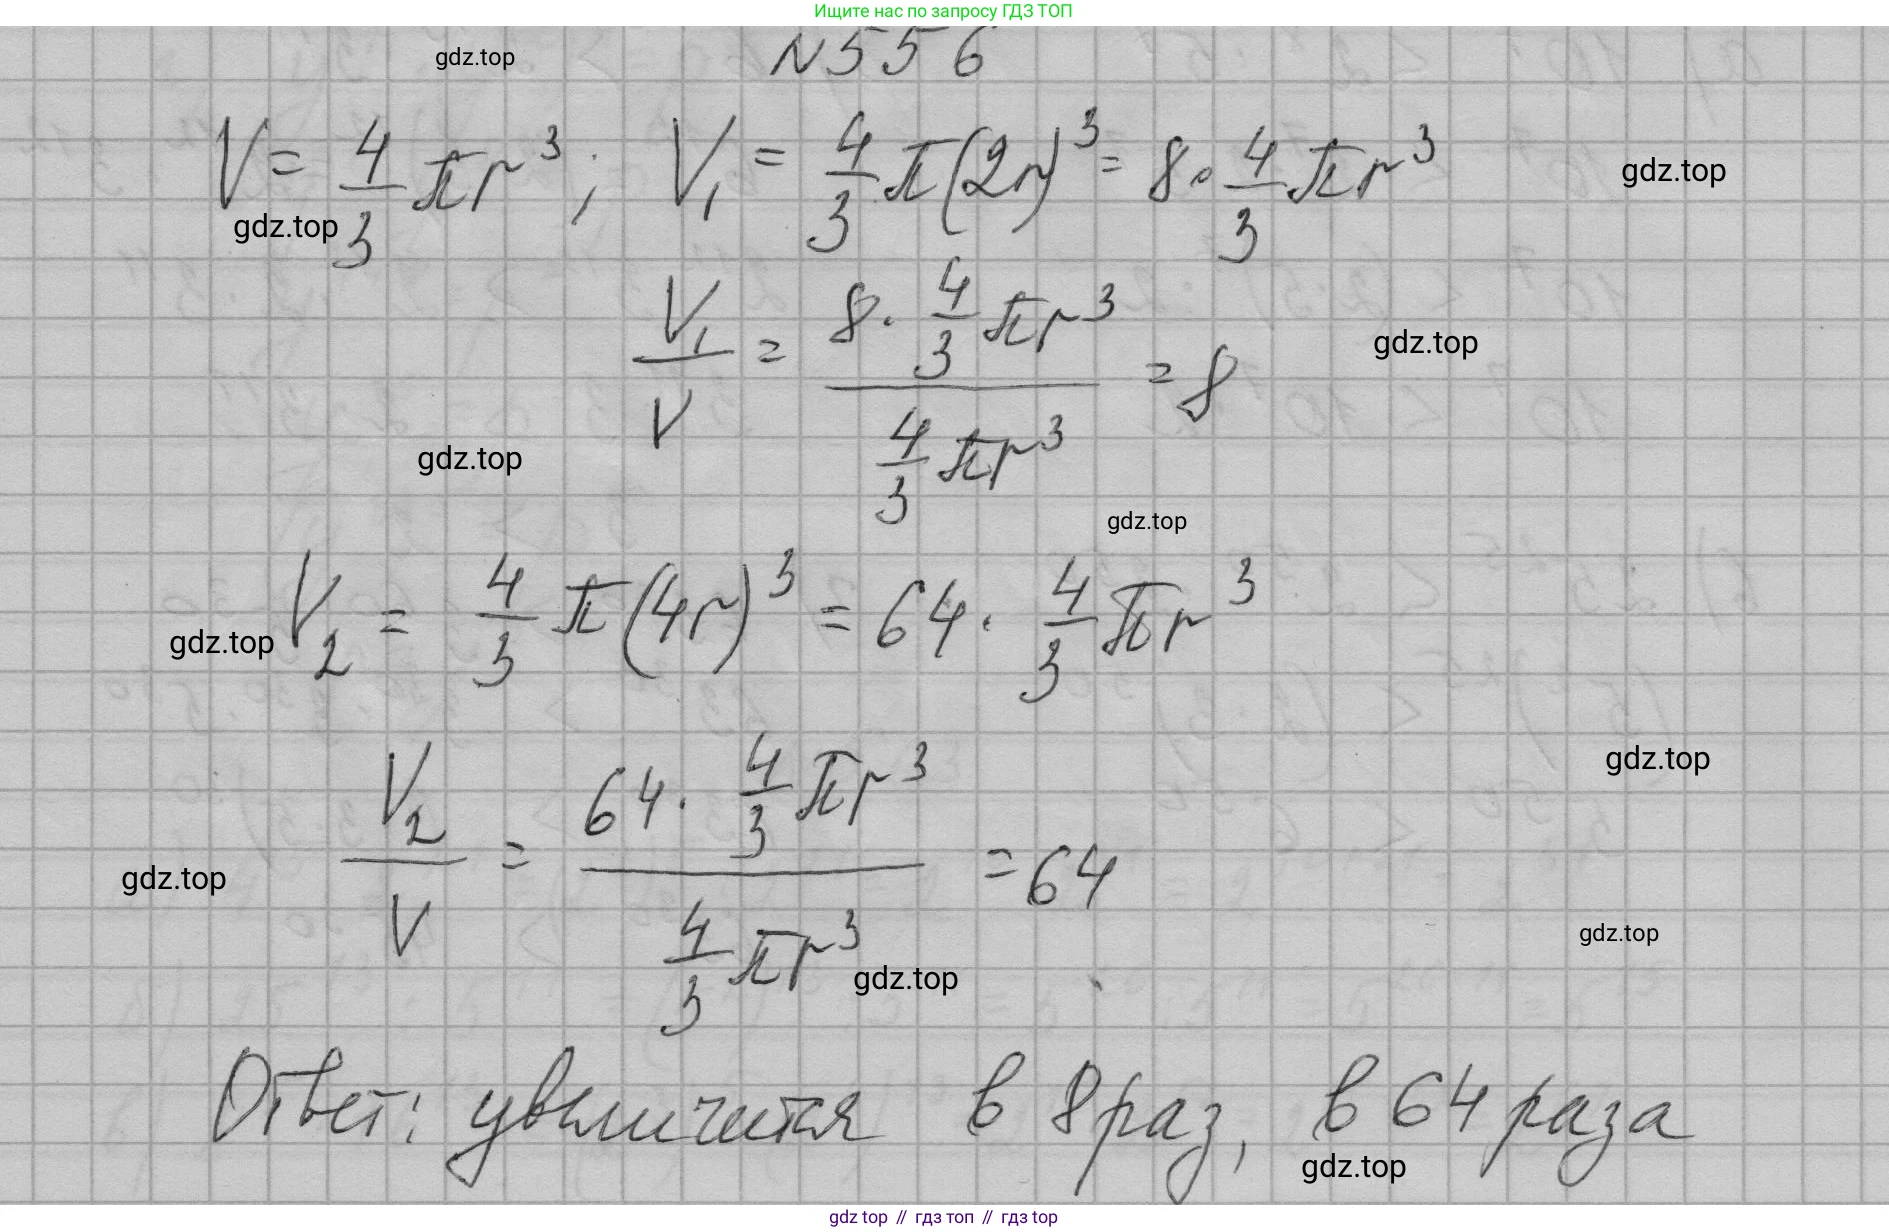 Ищите нас по запросу ГДЗ ТОП
N556
gdz.top
V = 4/3 πr³; V₁ = 4/3 π(2r)³ = 8 · 4/3 πr³
gdz.top
gdz.top
V₁/V = (8 · 4/3 πr³)/(4/3 πr³) = 8
gdz.top
gdz.top
gdz.top
V₂ = 4/3 π(4r)³ = 64 · 4/3 πr³
gdz.top
gdz.top
V₂/V = (64 · 4/3 πr³)/(4/3 πr³) = 64
gdz.top
gdz.top
gdz.top
Ответ: увеличится в 8 раз, в 64 раза
gdz.top
gdz top // гдз топ // гдз top